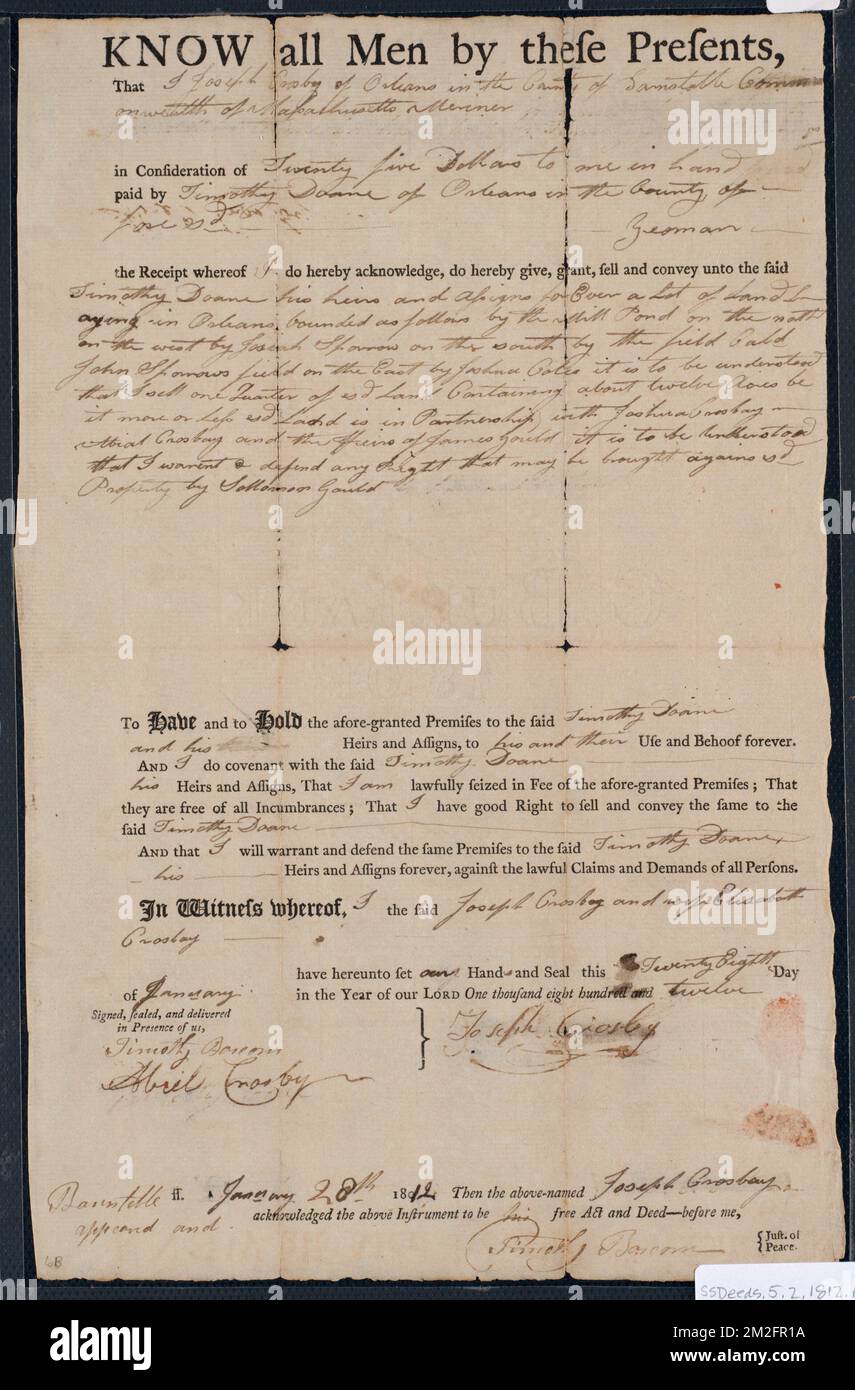 KNOW all Men by theſe Preſents,
That I Joseph Crosby of Orleans in the County of Barnstable Comm
onwealth of Massachusetts Meriner
in Conſideration of Twenty five Dollars to me in hand
paid by Timothy Doane of Orleans in the County of
fore sd Yeoman
the Receipt whereof I do hereby acknowledge, do hereby give, grant, ſell and convey unto the ſaid
Timothy Doane his heirs and Asigns for Ever a Lot of Land L
aying in Orleans bounded as follows by the Mill Pond on the north
on the west by Josiah Sporrow on the south by the field Cald
John Sporrows field on the East by Joshua Coles it is to be understood
that I sell one Quarter of sd Land Containing about twelve Acres be
it more or Less sd Land is in Partnership with Joshua Crosbay
Abial Crosbay and the Heirs of James Gould it is to be Understood
that I warent & defend any Right that may be brought agains sd
Property by Sollomon Gould
To Have and to Hold the afore-granted Premiſes to the ſaid Timothy Doane
and his Heirs and Aſſigns, to his and their Uſe and Behoof forever.
AND I do covenant with the ſaid Timothy Doane
his Heirs and Aſſigns, That I am lawfully ſeized in Fee of the afore-granted Premiſes; That
they are free of all Incumbrances; That I have good Right to ſell and convey the ſame to the
ſaid Timothy Doane
AND that I will warrant and defend the ſame Premiſes to the ſaid Timothy Doane
his Heirs and Aſſigns forever, againſt the lawful Claims and Demands of all Perſons.
In Witneſs whereof, I the ſaid Joseph Crosby and wife Elisabeth
Crosbay
have hereunto ſet our Hands and Seal this Twenty Eighth Day
of January in the Year of our LORD One thouſand eight hundred and twelve
Signed, ſealed, and delivered
in Preſence of us,
Timothy Bascom
Abiel Crosby
Joseph Crosby
Barnstble ſſ. January 28th 1812 Then the above-named Joseph Crosbay
appeared and acknowledged the above Inſtrument to be his free Act and Deed—before me,
Timothy Bascom
Juſt. of
Peace.
6B
SSDeeds.5.2.1812.
alamy
Image ID: 2M2FR1A
www.alamy.com